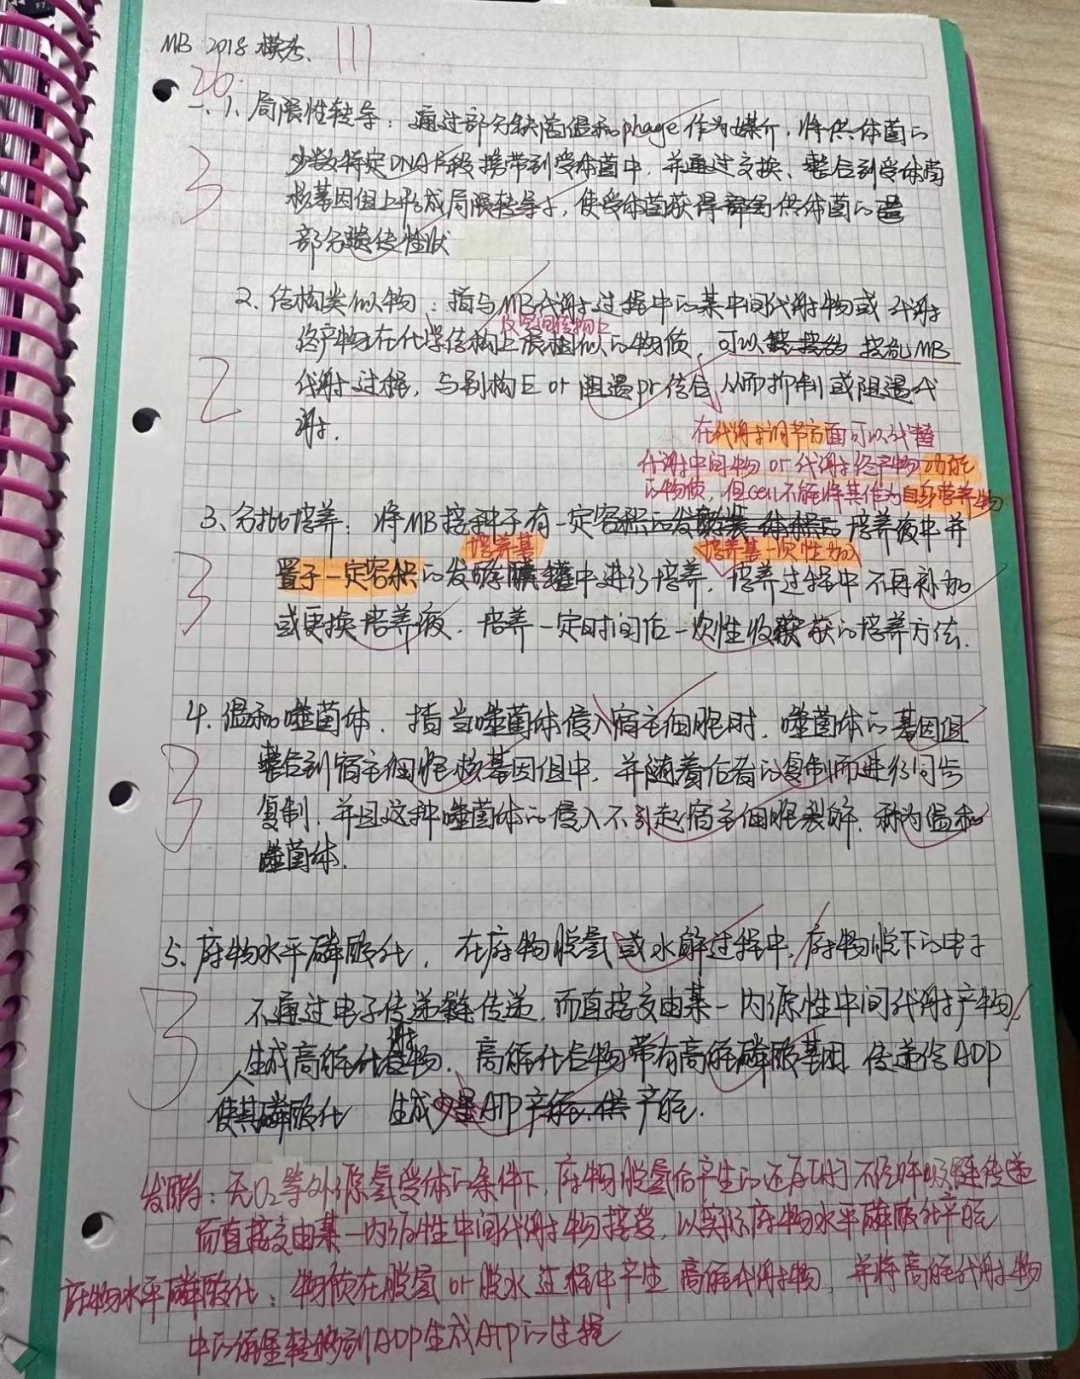 MB 2018 模考. 111
26
一. 1. 局限性转导: 通过部分缺陷温和phage作为媒介, 将供体菌的
少数特定DNA片段携带到受体菌中, 并通过交换、整合到受体菌
核基因组上形成局限转导子, 使受体菌获得供体菌的
部分遗传性状
3
2. 结构类似物: 指与MB代谢过程中的某中间代谢物或代谢
及空间结构上
终产物在化学结构上很相似的物质, 可以扰乱MB
代谢过程, 与别构E or 阻遏pr结合从而抑制或阻遏代
谢.
2
在代谢调节方面可以代替
代谢中间物 or 代谢终产物功能
的物质, 但cell不能将其作为自身营养物
3. 分批培养: 将MB接种于有一定容积的培养液中并
培养基 培养基一次性加入
置于一定容积的发酵罐中进行培养, 培养过程中不再补加
或更换培养液, 培养一定时间后一次性收获的培养方法.
3
4. 温和噬菌体. 指当噬菌体侵入宿主细胞时, 噬菌体的基因组
整合到宿主细胞核基因组中, 并随着后者的复制而进行同步
复制, 并且这种噬菌体的侵入不引起宿主细胞裂解, 称为温和
噬菌体.
3
5. 底物水平磷酸化, 在底物脱氢或水解过程中, 底物脱下的电子
不通过电子传递链传递, 而直接交由某一内源性中间代谢产物
生成高能化合物, 高能化合物带有高能磷酸基团, 传递给ADP
使其磷酸化 生成少量ATP 产能.
3
发酵: 无O₂等外源氢受体的条件下, 底物脱氢后产生的还原[H]不经呼吸链传递
而直接交由某一内源性中间代谢物接受, 以实际底物水平磷酸化产能
底物水平磷酸化: 物质在脱氢 or 脱水过程中产生高能代谢物, 并将高能代谢物
中的能量转移到ADP生成ATP的过程